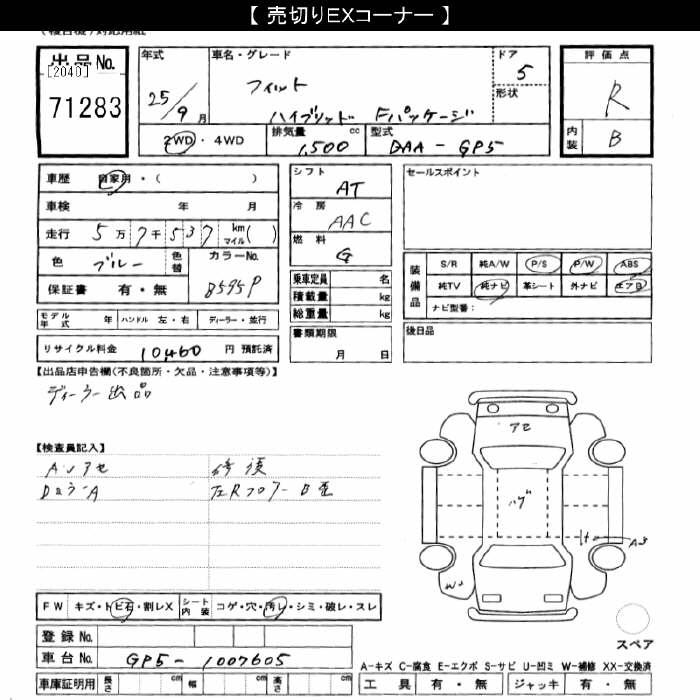 【 売切りEXコーナー 】
(複合機)対応用紙
出品No.
[2040]
71283
年式
25/9月
車名・グレード
フィット
ハイブリッド Fパッケージ
ドア
5
形状
2WD・4WD
排気量 1,500 cc
型式 DAA-GP5
評価点
R
内装
B
車歴 自家用・( )
車検 年 月
走行 5万7千537 km マイル( )
色 ブルー 色替
カラーNo. B595P
保証書 有・無
モデル年式 年 ハンドル 左・右 ディーラー・並行
リサイクル料金 10,460 円 預託済
シフト
AT
冷房
AAC
燃料
G
乗車定員 名
積載量 kg
総重量 kg
書類期限
月 日
セールスポイント
装備品
S/R 純A/W P/S P/W ABS
純TV 純ナビ 革シート 外ナビ エアB
ナビ型番:
後日品
【出品店申告欄(不良箇所・欠品・注意事項等)】
ディーラー出品
【検査員記入】
修復
アセ
ハゲ
W2
スペア
FW キズ・トビ石・割レX シート内装 コゲ・穴・汚レ・シミ・破レ・スレ
登録No.
車台No. GP5-1007605
車庫証明用 長さ cm 幅 cm 高さ cm
A-キズ C-腐食 E-エクボ S-サビ U-凹ミ W-補修 XX-交換済
工具 有・無 ジャッキ 有・無